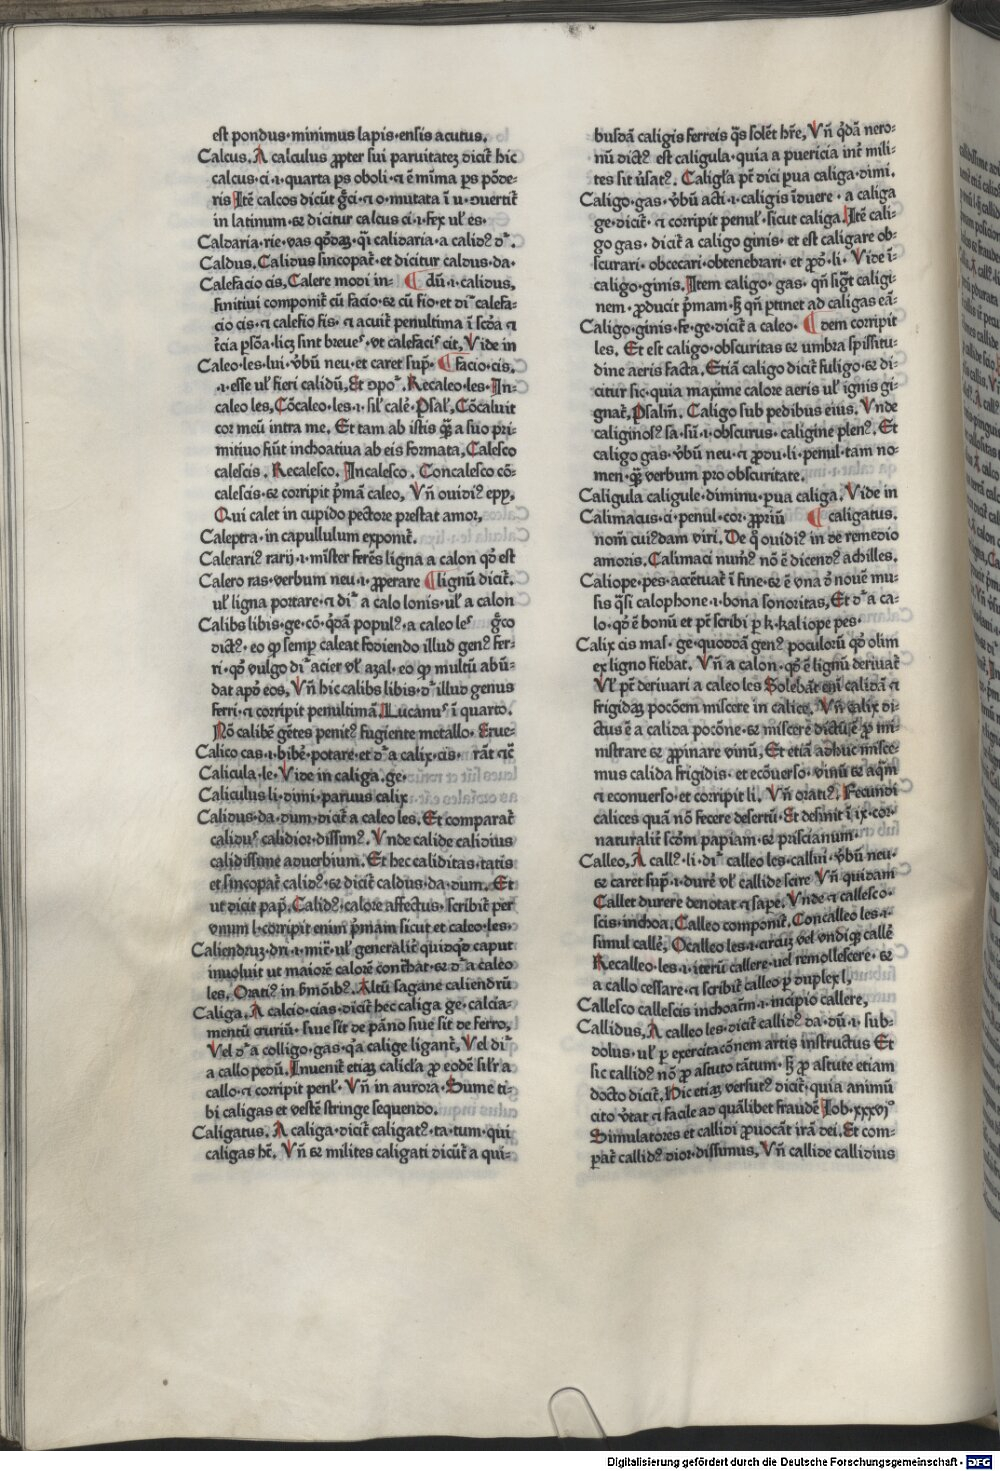 est pondus·minimus lapis·ensis acutus.
Calcus. A calculus ꝓpter sui paruitateꝫ dicit᷑ hic
calcus·ci·ı·quarta ps oboli·⁊ ē mīma ꝑs pōde⸗
ris Itē calcos dicūt g̃ci·⁊ o·mutata ī u·ↄuertit᷑
in latinum·et dicitur calcus ci·ı·fex ul̕ es·
Caldaria·rie·vas qd̕daꝫ·q̄i calidaria·a calid⁹ d̾r.
Caldus. Calidus sincopat᷑·et dicitur caldus·da·
Calefacio cis. Calere modi in⸗ ¶ dū·ı·calidus,
finitiui componit᷑ cū facio·et cū fio·et di᷑ calefa⸗
cio cis·⁊ calefio fis·⁊ acuit᷑ penultima ī scd̃a ⁊
t᷑cia ꝑsōa·licꝫ sint breues·vt calefacis cit, Vide in
Caleo·les·lui·vb̄ū neu·et caret sup̄· ¶ facio·cis.
·ı·esse ul̕ fieri calidū, Et ↄpo᷑. Recaleo·les·In⸗
caleo les, Cōcaleo·les·ı·sil̕ calē·Psal̕, Cōcaluit
cor meū intra me. Et tam ab istis qꝫ a suo pri⸗
mitiuo fiūt inchoatiua ab eis formata, Calesco
calescis. Recalesco. Incalesco. Concalesco cō⸗
calescis·et corripit p̄mā caleo, Vn̄ ouidi⁹ epp̄,
Qui calet in cupido pectore prestat amor,
Caleptra·in capullulum exponit᷑.
Calerari⁹ rarij·ı·mīster ferēs ligna a calon qd̕ est
Calero ras·verbum neu·ı·ꝓperare ¶ lignū dicit᷑.
ul̕ ligna portare·⁊ di᷑ a calo lonis·ul̕ a calon
Calibs libis·ge·cō·qd̃ā popul⁹·a caleo les g̃co
dict⁹·eo ꝙ semꝑ caleat fodiendo illud gen⁹ fer⸗
ri·qd̕ vulgo di᷑ acier vl̕ azal·eo ꝙ multū abū⸗
dat apd̕ eos, Vn̄ hic calibs libis·d᷑ illud genus
ferri·⁊ corripit penultimā. Lucanus ī quarto.
Nō calibē gētes penit⁹ fugiente metallo· Erue⸗
Calico cas·ı·bibe᷑·potare·et d᷑ a calix·cis· rāt ⁊c̄
Calicula·le·Vide in caliga·ge·
Caliculus·li·dimi·paruus calix
Calidus·da·dum·dicit᷑ a caleo les. Et comparat᷑
calidus calidior·dissim⁹. Vnde calide calidius
calidissime aduerbium. Et hec caliditas·tatis
et sincopat᷑ calid⁹·et dicit᷑ caldus·da·dum. Et
ut dicit pap̄. Calid⁹·calore affectus·scribit᷑ per
vnum l·corripit enim p̄mam sicut et caleo·les·
Caliendruꝫ·dri·ı·mit᷑·ul̕ generalit᷑ quidqd̕ caput
inuoluit ut maiorē calorē contʳhat·et d᷑ a caleo
les. Orati⁹ in s̄mōib⁹. Altū sagane caliendrū
Caliga. A calcio·cias·dicit᷑ hec caliga ge·calcia⸗
mentū cruriū·siue sit de pāno siue sit de ferro,
Vel d᷑ a colligo·gas·qa calige ligant᷑, Vel di᷑
a callo pedū. Inuenit᷑ etiaꝫ calicl̕a ꝓ eodē sil̕r a
callo·⁊ corripit penl̕·Vn̄ in aurora·Sume ti⸗
bi caligas et vestē stringe sequendo.
Caligatus. A caliga·dicit᷑ caligat⁹·ta·tum·qui
caligas hꝫ. Vn̄ et milites caligati dicūt᷑ a qui⸗
busdā caligis ferreis q̄s solēt hr̄e, Vn̄ qd̃ā nero⸗
nū dict⁹ est caligula·quia a puericia int᷑ mili⸗
tes sit v̓sat⁹. Caligl̕a pt̄ dici pua caliga·dimi.
Caligo·gas·vb̄ū acti·ı·caligis īduere·a caliga
ge·dicit᷑·⁊ corripit penul̕·sicut caliga. Itē cali⸗
go gas·dicit᷑ a caligo ginis·et est caligare ob⸗
scurari·obcecari·obtenebrari·et ꝓd̕·li·Vide ī
caligo·ginis. Item caligo·gas·qn̄ sig̃t caligi⸗
nem·ꝓducit p̄mam·ſꝫ qn̄ ꝑtinet ad caligas eā⸗
Caligo·ginis·fe·ge·dicit᷑ a caleo·¶ dem corripit
les, Et est caligo·obscuritas et umbra spissitu⸗
dine aeris facta. Etiā caligo dicit᷑ fuligo·et di⸗
citur sic·quia maxime calore aeris ul̕ ignis gi⸗
gnat᷑, Psalm̄. Caligo sub pedibus eius. Vnde
caliginos⁹ sa·sū·ı·obscurus·caligine plen⁹. Et
caligo gas·vb̄ū neu·⁊ ꝓdu·li·penul·tam no⸗
men·qꝫ verbum pro obscuritate.
Caligula caligule·diminu·pua caliga. Vide in
Calimacus·ci·penul·cor·ꝓpriū ¶ caligatus.
nom̄ cui⁹dam viri. De q̊ ouidi⁹ in de remedio
amoris. Calimaci num⁹ nō ē dicend⁹ achilles.
Caliope·pes·acētuat᷑ ī fine·et ē vna d̕ nouē mu⸗
sis q̄si calophone·ı·bona sonoritas, Et d᷑ a ca⸗
lo·qd̕ ē bonū et pt̄ scribi p k·kaliope pes·
Calix cis mas·ge·quoddā gen⁹ poculorū qd̕ olim
ex ligno fiebat. Vn̄ a calon·qd̕ ē lignū deriuat᷑
Vl̕ pt̄ deriuari a caleo les Solebāt eni᷑ calidā ⁊
frigidaꝫ pocōem miscere in calice. Vn̄ calix di⸗
ctus ē a calida pocōne·et miscere dictū ē ꝓ mi⸗
nistrare et ꝓpinare vinū, Et etiā adhuc misce⸗
mus calida frigidis·et ecōuerso·vinū et aqm̄
⁊ econuerso·et corripit li. Vn̄ orati⁹. Fecundi
calices quā nō fecere desertū·Et desinit ī ix·cor·
naturalit᷑ scd̃m papiam·et priscianum·
Calleo, A call⁹·li·di᷑ calleo les·callui·vb̄ū neu·
et caret sup̄·ı·dure᷑ vl̕ callide scire Vn̄ quidam
Callet durere denotat ⁊ sape. Vnde ⁊ callesco·
scis·inchoa. Calleo componit᷑. Concalleo les·ı·
simul callē. Ocalleo les·ı·circūqꝫ vel vndiqꝫ callē
Recalleo·les·ı·iterū callere·uel remollescere·et
a callo cessare·⁊ scribit᷑ calleo ꝑ duplex l,
Callesco callescis inchoatm̄·ı·incipio callere,
Callidus, A calleo les·dicit᷑ callid⁹ da·dū·ı·sub⸗
dolus·ul̕ ꝑ exercitacōnem artis instructus Et
sic callid⁹ nō ꝓ astuto tātum·ſꝫ ꝓ astute etiam
docto dicit᷑. Hic etiaꝫ versut⁹ dicit᷑·quia animū
cito v̓tat ⁊ facile ad quālibet fraudē Iob·xxxvi°
Simulatores et callidi ꝓuocāt irā dei. Et com⸗
ꝑat᷑ callid⁹ dior·dissimus, Vn̄ callide callidius
Digitalisierung gefördert durch die Deutsche Forschungsgemeinschaft - DFG